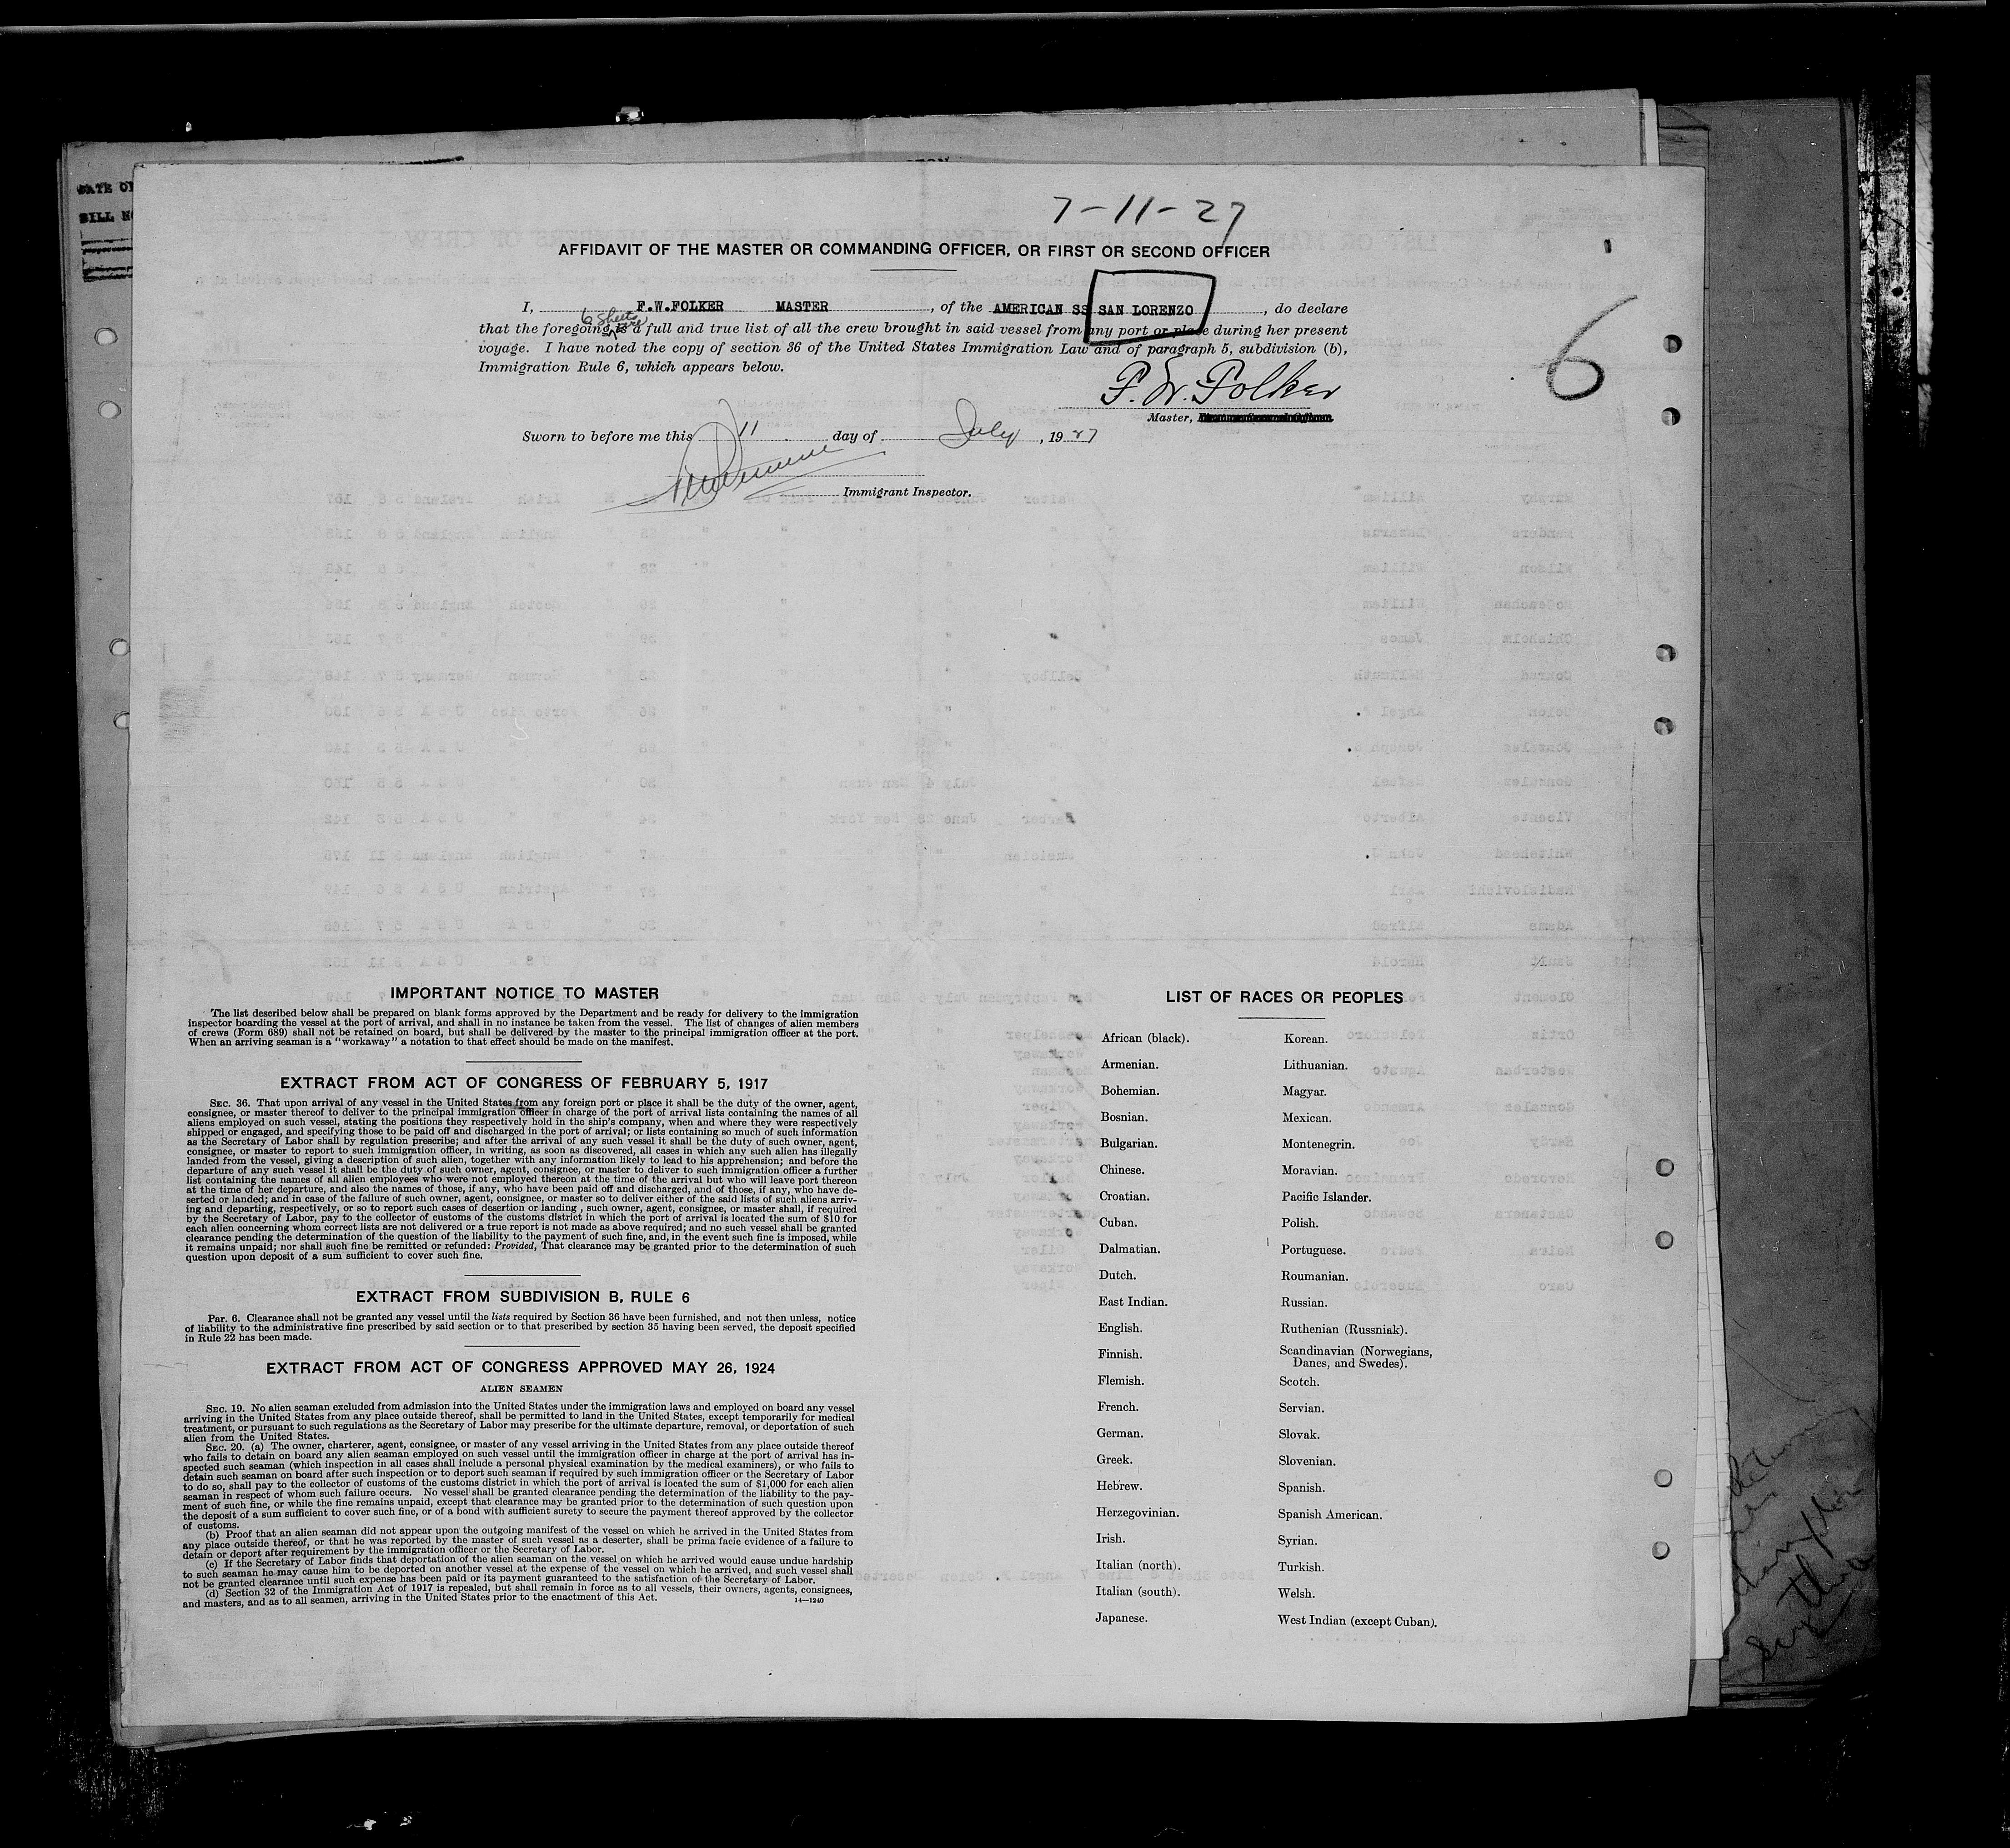 DATE OF
BILL NO
7-11-27
AFFIDAVIT OF THE MASTER OR COMMANDING OFFICER, OR FIRST OR SECOND OFFICER
I, F.W.FOLKER MASTER, of the AMERICAN SS SAN LORENZO, do declare
6 sheets are
that the foregoing is a full and true list of all the crew brought in said vessel from any port or place during her present
voyage. I have noted the copy of section 36 of the United States Immigration Law and of paragraph 5, subdivision (b),
Immigration Rule 6, which appears below.
6
F. W. Folker
Master,
Sworn to before me this 11 day of July, 1927
Immigrant Inspector.
IMPORTANT NOTICE TO MASTER
The list described below shall be prepared on blank forms approved by the Department and be ready for delivery to the immigration
inspector boarding the vessel at the port of arrival, and shall in no instance be taken from the vessel. The list of changes of alien members
of crews (Form 689) shall not be retained on board, but shall be delivered by the master to the principal immigration officer at the port.
When an arriving seaman is a "workaway" a notation to that effect should be made on the manifest.
EXTRACT FROM ACT OF CONGRESS OF FEBRUARY 5, 1917
SEC. 36. That upon arrival of any vessel in the United States from any foreign port or place it shall be the duty of the owner, agent,
consignee, or master thereof to deliver to the principal immigration officer in charge of the port of arrival lists containing the names of all
aliens employed on such vessel, stating the positions they respectively hold in the ship's company, when and where they were respectively
shipped or engaged, and specifying those to be paid off and discharged in the port of arrival; or lists containing so much of such information
as the Secretary of Labor shall by regulation prescribe; and after the arrival of any such vessel it shall be the duty of such owner, agent,
consignee, or master to report to such immigration officer, in writing, as soon as discovered, all cases in which any such alien has illegally
landed from the vessel, giving a description of such alien, together with any information likely to lead to his apprehension; and before the
departure of any such vessel it shall be the duty of such owner, agent, consignee, or master to deliver to such immigration officer a further
list containing the names of all alien employees who were not employed thereon at the time of the arrival but who will leave port thereon
at the time of her departure, and also the names of those, if any, who have been paid off and discharged, and of those, if any, who have de-
serted or landed; and in case of the failure of such owner, agent, consignee, or master so to deliver either of the said lists of such aliens arriv-
ing and departing, respectively, or so to report such cases of desertion or landing , such owner, agent, consignee, or master shall, if required
by the Secretary of Labor, pay to the collector of customs of the customs district in which the port of arrival is located the sum of $10 for
each alien concerning whom correct lists are not delivered or a true report is not made as above required; and no such vessel shall be granted
clearance pending the determination of the question of the liability to the payment of such fine, and, in the event such fine is imposed, while
it remains unpaid; nor shall such fine be remitted or refunded: Provided, That clearance may be granted prior to the determination of such
question upon deposit of a sum sufficient to cover such fine.
EXTRACT FROM SUBDIVISION B, RULE 6
PAR. 6. Clearance shall not be granted any vessel until the lists required by Section 36 have been furnished, and not then unless, notice
of liability to the administrative fine prescribed by said section or to that prescribed by section 35 having been served, the deposit specified
in Rule 22 has been made.
EXTRACT FROM ACT OF CONGRESS APPROVED MAY 26, 1924
ALIEN SEAMEN
SEC. 19. No alien seaman excluded from admission into the United States under the immigration laws and employed on board any vessel
arriving in the United States from any place outside thereof, shall be permitted to land in the United States, except temporarily for medical
treatment, or pursuant to such regulations as the Secretary of Labor may prescribe for the ultimate departure, removal, or deportation of such
alien from the United States.
SEC. 20. (a) The owner, charterer, agent, consignee, or master of any vessel arriving in the United States from any place outside thereof
who fails to detain on board any alien seaman employed on such vessel until the immigration officer in charge at the port of arrival has in-
spected such seaman (which inspection in all cases shall include a personal physical examination by the medical examiners), or who fails to
detain such seaman on board after such inspection or to deport such seaman if required by such immigration officer or the Secretary of Labor
to do so, shall pay to the collector of customs of the customs district in which the port of arrival is located the sum of $1,000 for each alien
seaman in respect of whom such failure occurs. No vessel shall be granted clearance pending the determination of the liability to the pay-
ment of such fine, or while the fine remains unpaid, except that clearance may be granted prior to the determination of such question upon
the deposit of a sum sufficient to cover such fine, or of a bond with sufficient surety to secure the payment thereof approved by the collector
of customs.
(b) Proof that an alien seaman did not appear upon the outgoing manifest of the vessel on which he arrived in the United States from
any place outside thereof, or that he was reported by the master of such vessel as a deserter, shall be prima facie evidence of a failure to
detain or deport after requirement by the immigration officer or the Secretary of Labor.
(c) If the Secretary of Labor finds that deportation of the alien seaman on the vessel on which he arrived would cause undue hardship
to such seaman he may cause him to be deported on another vessel at the expense of the vessel on which he arrived, and such vessel shall
not be granted clearance until such expense has been paid or its payment guaranteed to the satisfaction of the Secretary of Labor.
(d) Section 32 of the Immigration Act of 1917 is repealed, but shall remain in force as to all vessels, their owners, agents, consignees,
and masters, and as to all seamen, arriving in the United States prior to the enactment of this Act.
14—1240
LIST OF RACES OR PEOPLES
African (black).
Armenian.
Bohemian.
Bosnian.
Bulgarian.
Chinese.
Croatian.
Cuban.
Dalmatian.
Dutch.
East Indian.
English.
Finnish.
Flemish.
French.
German.
Greek.
Hebrew.
Herzegovinian.
Irish.
Italian (north).
Italian (south).
Japanese.
Korean.
Lithuanian.
Magyar.
Mexican.
Montenegrin.
Moravian.
Pacific Islander.
Polish.
Portuguese.
Roumanian.
Russian.
Ruthenian (Russniak).
Scandinavian (Norwegians,
Danes, and Swedes).
Scotch.
Servian.
Slovak.
Slovenian.
Spanish.
Spanish American.
Syrian.
Turkish.
Welsh.
West Indian (except Cuban).